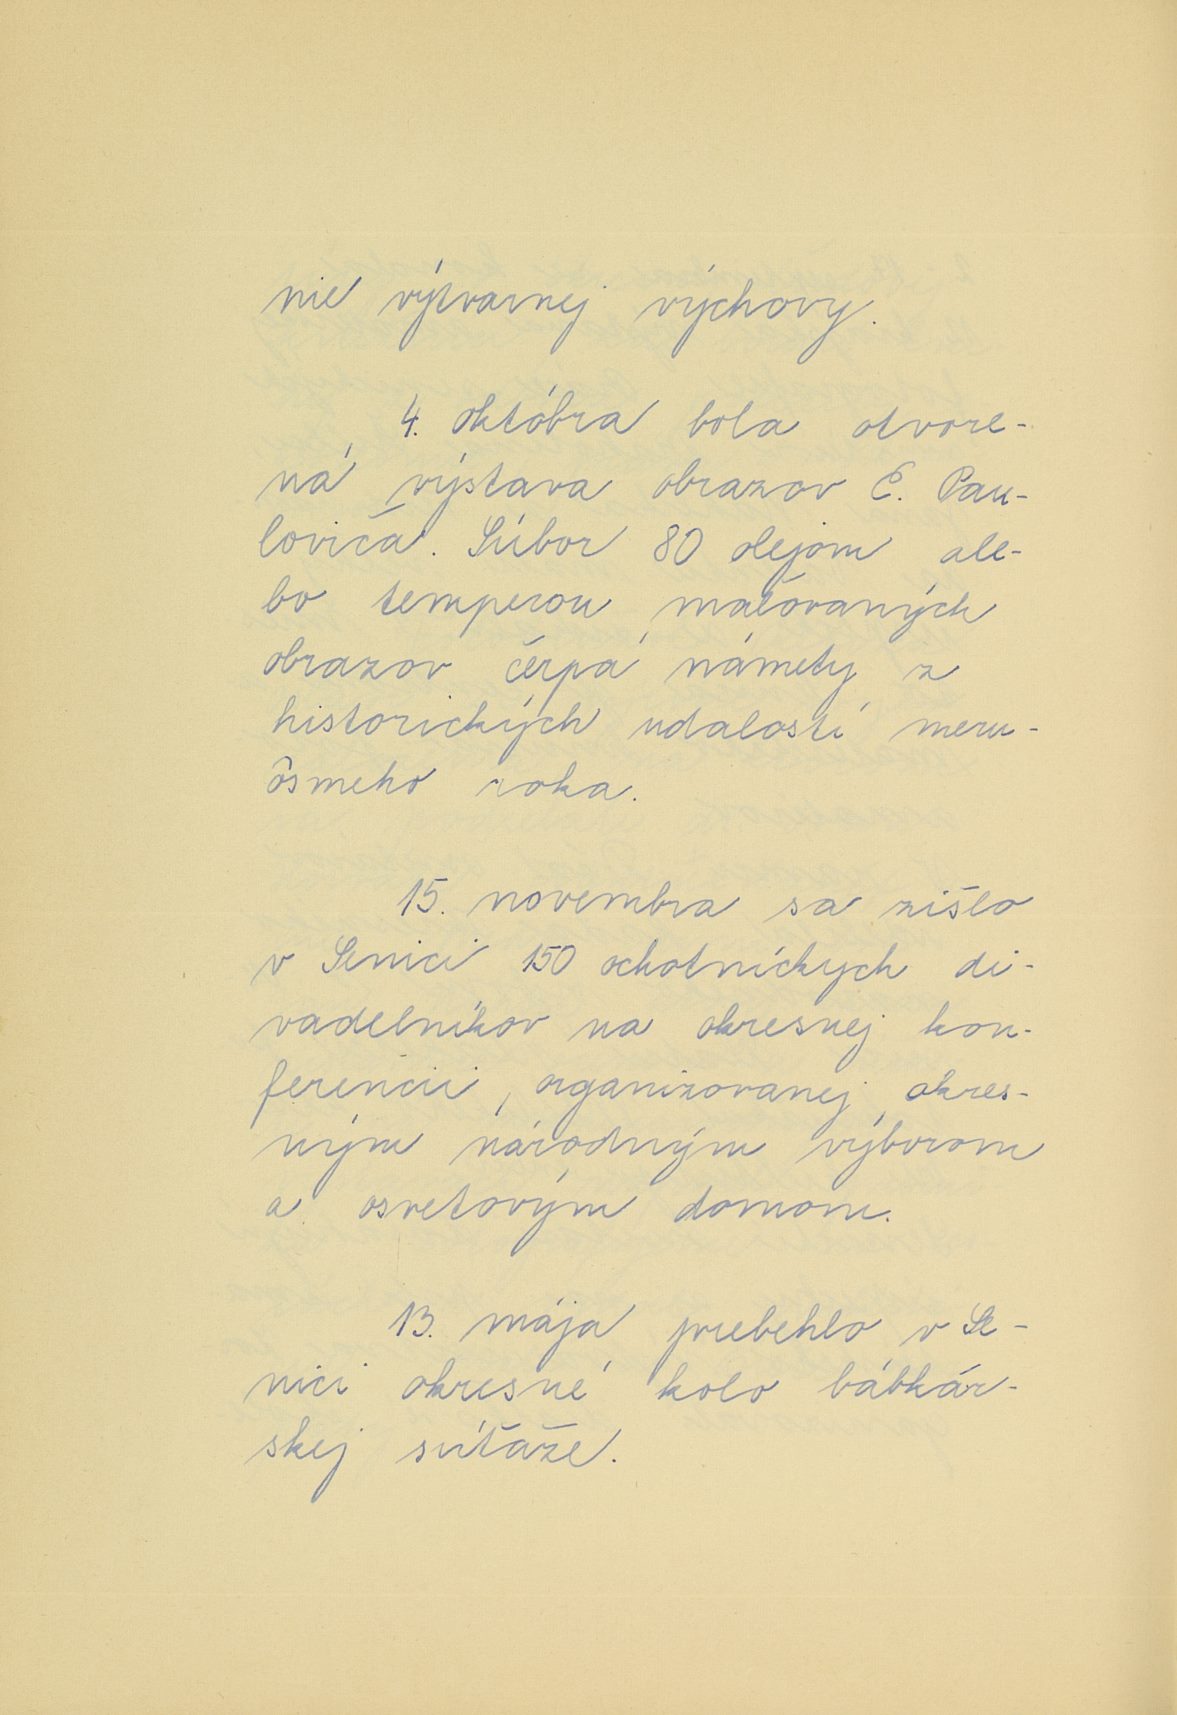 nie výtvarnej výchovy.
4. októbra bola otvore-
ná výstava obrazov E. Pau-
loviča. Súbor 80 olejom ale-
bo temperou maľovaných
obrazov čerpá námety z
historických udalostí meru-
ôsmeho roka.
15. novembra sa zišlo
v Senici 150 ochotníckych di-
vadelníkov na okresnej kon-
ferencii, organizovanej okres-
ným národným výborom
a osvetovým domom.
13. mája prebehlo v Se-
nici okresné kolo bábkár-
skej súťaže.